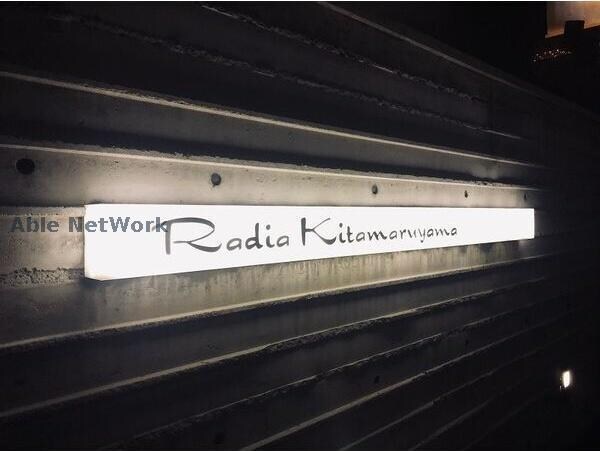 Able NetWork
Radia Kitamaruyama